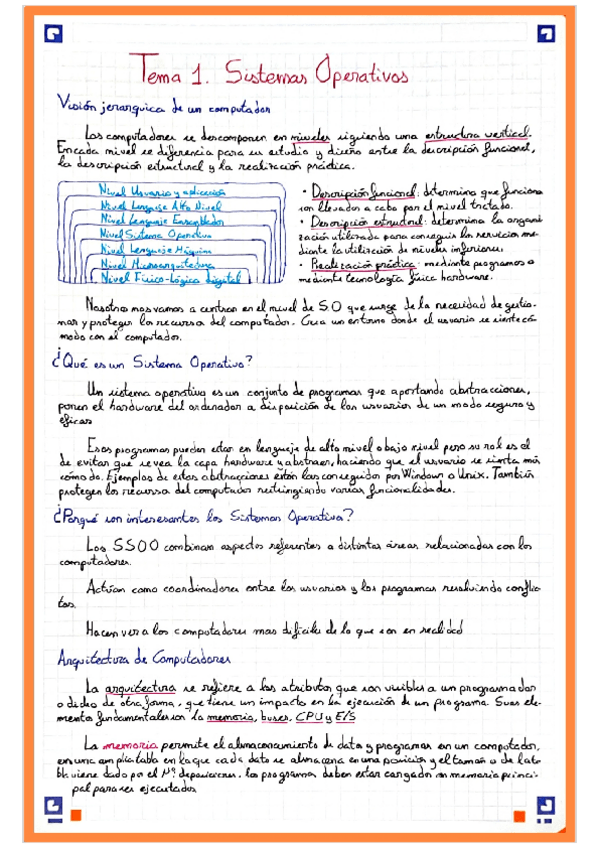 Tema 1. Sistemas Operativos
Visión jerarquica de un computador
Los computadores se descomponen en niveles siguiendo una estructura vertical.
En cada nivel se diferencia para su estudio y diseño entre la descripción funcional,
la descripción estructural y la realización práctica.
Nivel Usuario y aplicación
Nivel Lenguaje Alto Nivel
Nivel Lenguaje Ensamblador
Nivel Sistema Operativo
Nivel Lenguaje Máquina
Nivel Microarquitectura
Nivel Físico-Lógico digital
• Descripción funcional: determina que funciones
son llevados a cabo por el nivel tratado.
• Descripción estructural: determina la organi-
zación utilizada para conseguir los servicios me-
diante la utilización de niveles inferiores.
• Realización práctica: mediante programas o
mediante tecnología física hardware.
Nosotros nos vamos a centrar en el nivel de SO que surge de la necesidad de gestio-
nar y proteger los recursos del computador. Crea un entorno donde el usuario se siente có-
modo con el computador.
¿Qué es un Sistema Operativo?
Un sistema operativo es un conjunto de programas que aportando abstracciones,
ponen el hardware del ordenador a disposición de los usuarios de un modo seguro y
eficaz
Esos programas pueden estar en lenguaje de alto nivel o bajo nivel pero su rol es el
de evitar que se vea la capa hardware y abstraer, haciendo que el usuario se sienta más
cómodo. Ejemplos de estas abstracciones están las conseguidas por Windows o Unix. También
protegen los recursos del computador restringiendo varias funcionalidades.
¿Porqué son interesantes los Sistemas Operativos?
Los SSOO combinan aspectos referentes a distintas áreas relacionadas con los
computadores.
Actúan como coordinadores entre los usuarios y los programas resolviendo conflic-
tos.
Hacen ver a los computadores mas dificiles de lo que son en realidad
Arquitectura de Computadores
La arquitectura se refiere a los atributos que son visibles a un programador
o dicho de otra forma, que tiene un impacto en la ejecución de un programa. Sus ele-
mentos fundamentales son la memoria, buses, CPU y E/S
La memoria permite el almacenamiento de datos y programas en un computador,
en una amplia tabla en la que cada dato se almacena en una posición y el tamaño de la ta-
bla viene dado por el Nº de posiciones. Los programas deben estar cargados en memoria princi-
pal para ser ejecutados